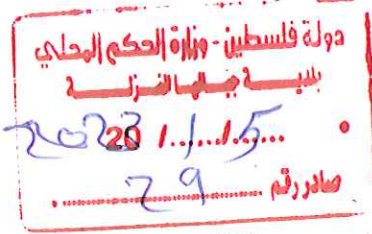 دولة فلسطين - وزارة الحكم المحلي
بلديــة جباليا النزلــة
20 /..1../..5....
صادر رقم ..29..